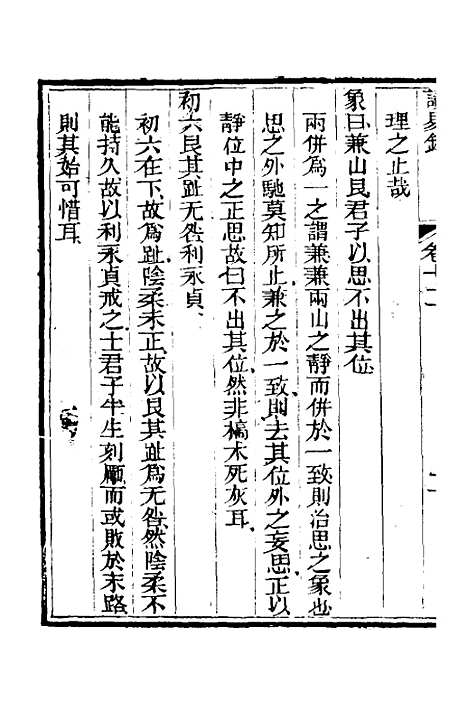 卷十二
理之止哉
象曰兼山艮君子以思不出其位
兩併爲一之謂兼兼兩山之靜而併於一致則治思之象也
思之外馳莫知所止兼之於一致則去其位外之妄思正以
靜位中之正思故曰不出其位然非槁木死灰耳
初六艮其趾无咎利永貞
初六在下故爲趾陰柔未正故以艮其趾爲无咎然陰柔不
能持久故以利永貞戒之士君子半生刻厲而或敗於末路
則其始可惜耳